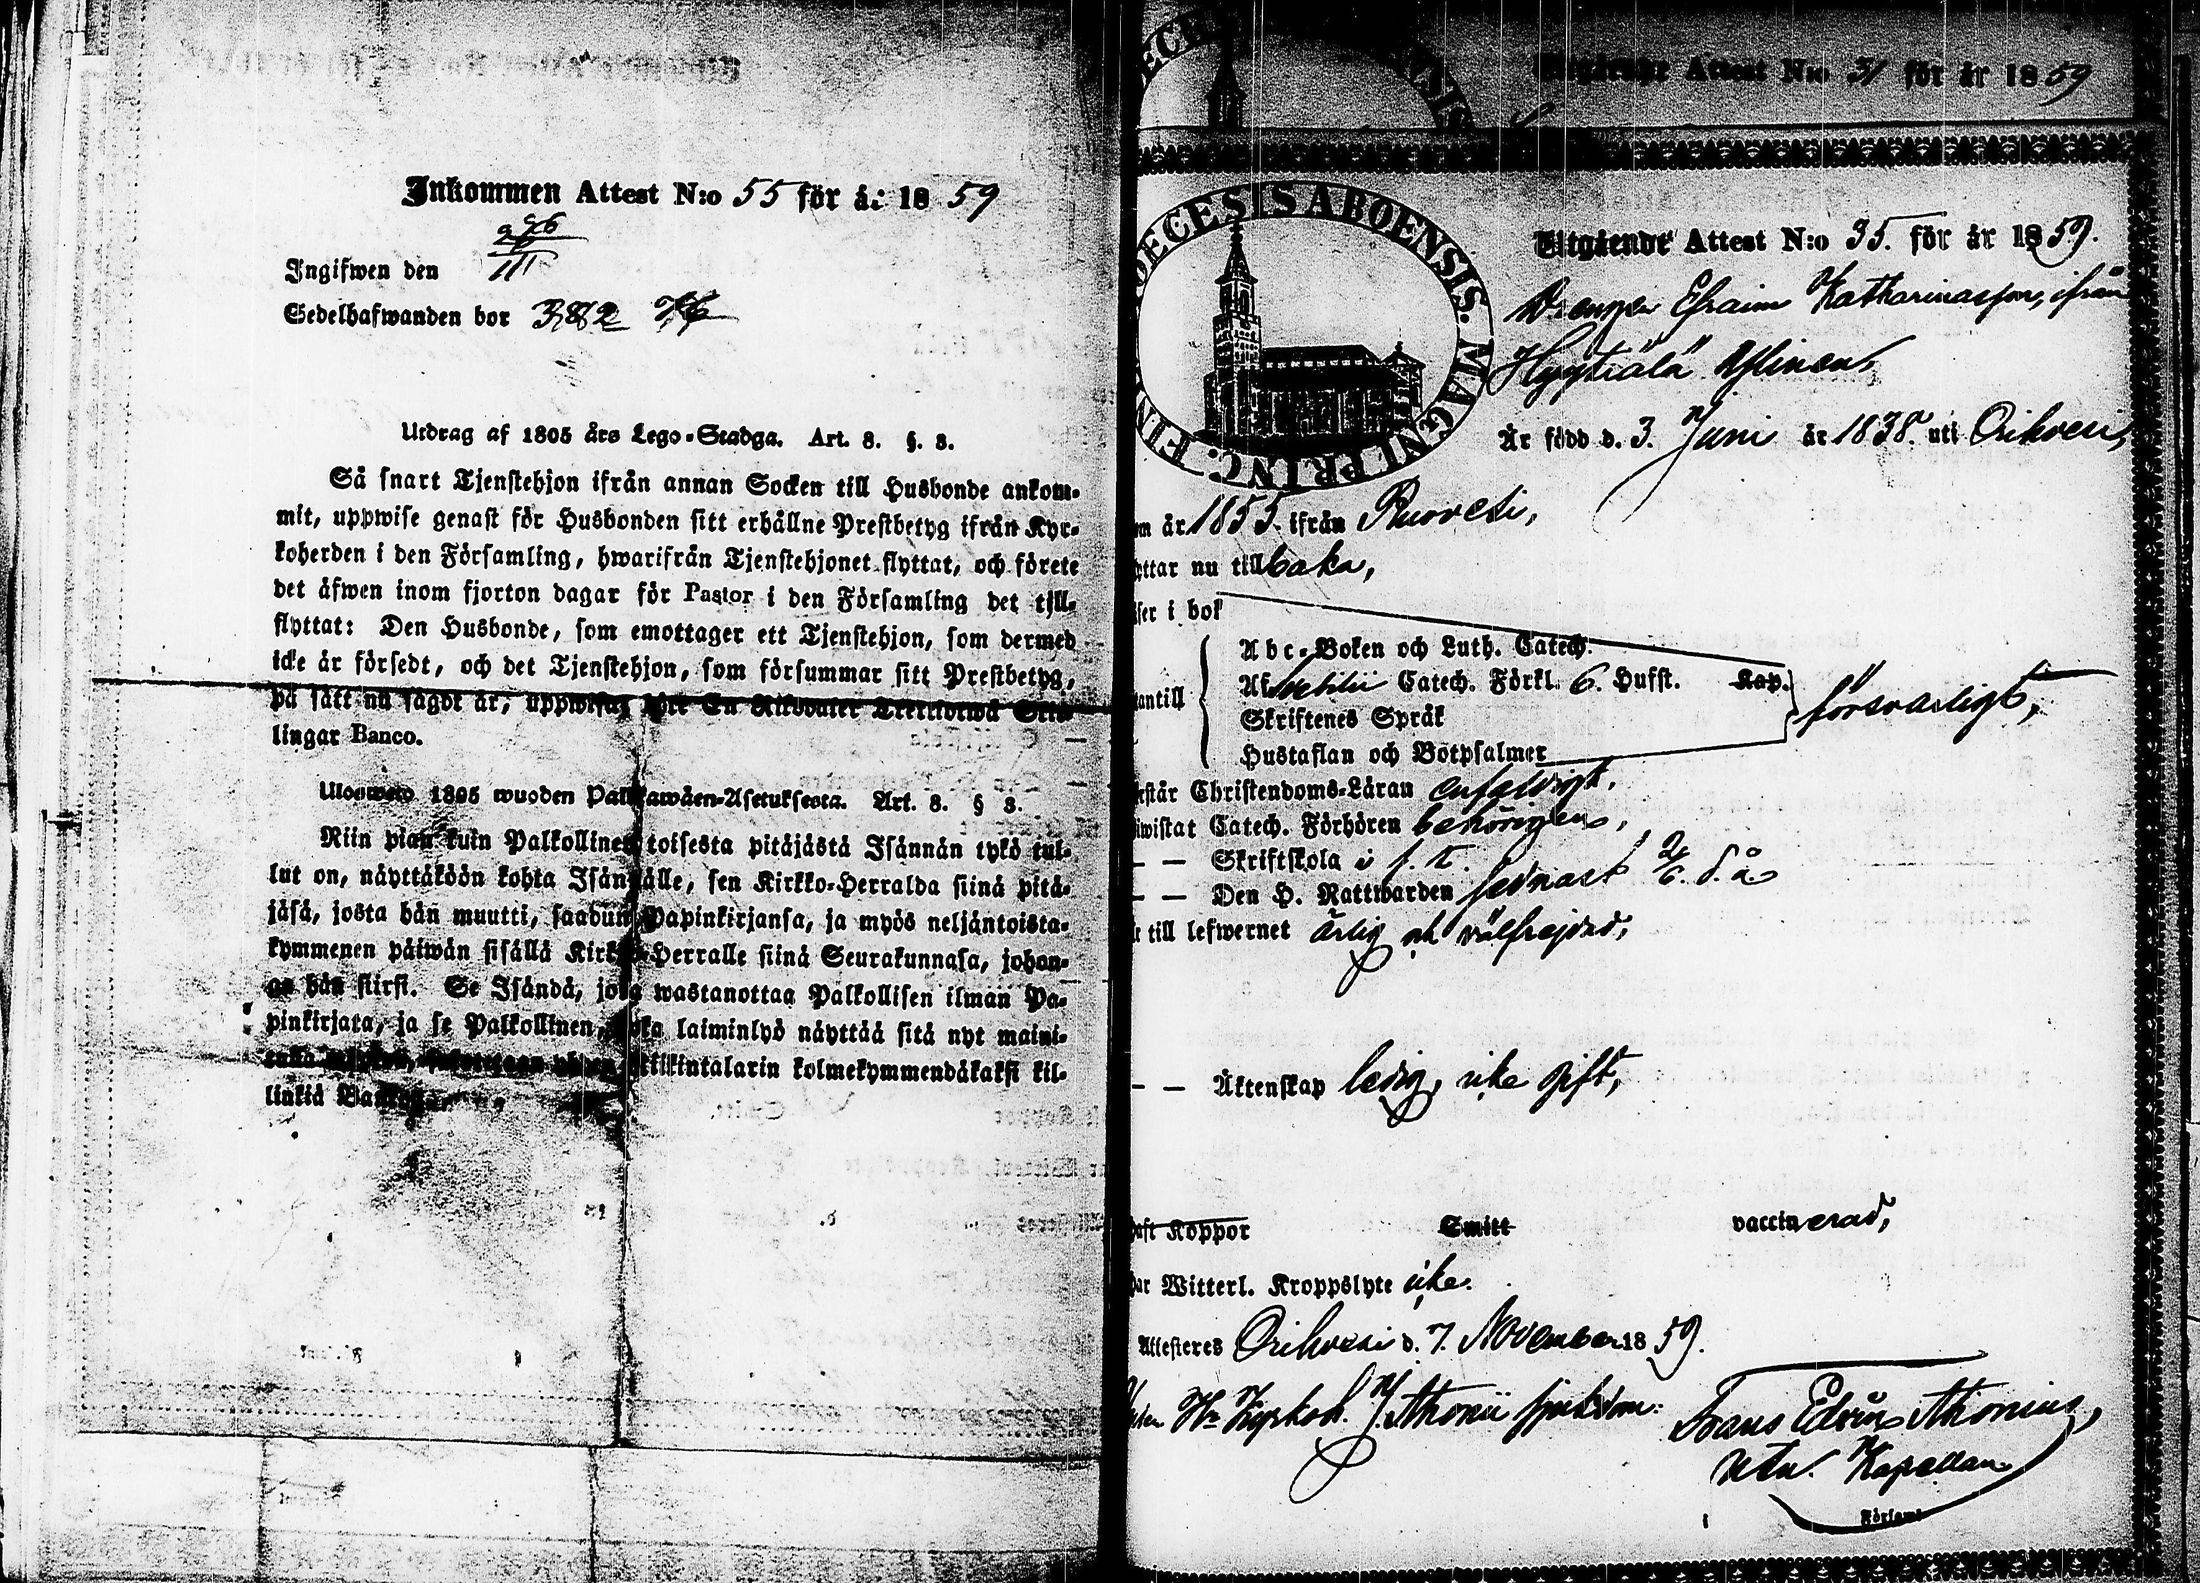 Inkommen Attest N:o 55 för år 18 59
Ingifwen den
Sedelhafwanden bor 382
Utdrag af 1805 års Lego-Stadga. Art. 8. §. 8.
Så snart Tjenstehjon ifrån annan Socken till Husbonde ankom-
mit, uppwise genast för Husbonden sitt erhållne Prestbetyg ifrån Kyr-
koherden i den Församling, hwarifrån Tjenstehjonet flyttat, och förete
det äfwen inom fjorton dagar för Pastor i den Församling det till-
flyttat: Den Husbonde, som emottager ett Tjenstehjon, som dermed
icke är försedt, och det Tjenstehjon, som försummar sitt Prestbetyg,
på sätt nu sagdt är, uppwisa, En Riksdaler Trettiotwå Skil-
lingar Banco.
Ulosweto 1805 wuoden Palkkawäen-Asetuksesta. Art. 8. § 8.
Niin pian kuin Palkollinen toisesta pitäjästä Isännän tykö tul-
lut on, näyttäköön kohta Isännälle, sen Kirkko-Herralda siinä pitä-
jäsä, josta hän muutti, saadun Papinkirjansa, ja myös neljäntoista-
kymmenen päiwän sisällä Kirkko-Herralle siinä Seurakunnasa, johon-
ga hän siirsi. Se Isändä, joka wastanottaa Palkollisen ilman Pa-
pinkirjata, ja se Palkollinen, joka laiminlyö näyttää sitä nyt maini-
Rikintalarin kolmekymmendäkaksi kil-
linkiä Bankosa.
Utgående Attest N:o 31 för år 18 59
DECESIS ABOENSIS. MAGNI PRINC. FIN
Utgående Attest N:o 35. för år 18 59.
Drengen Efraim Katharinasson, ifrån
Hyytiälä
Är född d. 3. Juni år 1838. uti Orihvesi,
om år 1855. ifrån Ruovesi,
yttar nu tillbaka,
ser i bok
Abc-Boken och Luth. Catech.
antill Af Svebilii Catech. Förkl. 6. Hufst. Kap. försvarligt,
Skriftenes Språk
Hustaflan och Botpsalmer
rstår Christendoms-Läran enfaldigt,
iwistat Catech. Förhören behörigen,
— — Skriftskola i f. k.
— — Den H. Nattwarden sednast 2/6. d. å.
r till lefwernet ärlig och välfrejdad,
— — Äktenskap ledig, icke gift,
aft Koppor Smitt vaccinerad,
har Witterl. Kroppslyte icke.
Attesteres Orihvesi d. 7. November 18 59.
Under Hr Kyrkoh. J. Ahonii sjukdom:
Frans Edvin Ahonius,
Kapellan.
Församl.